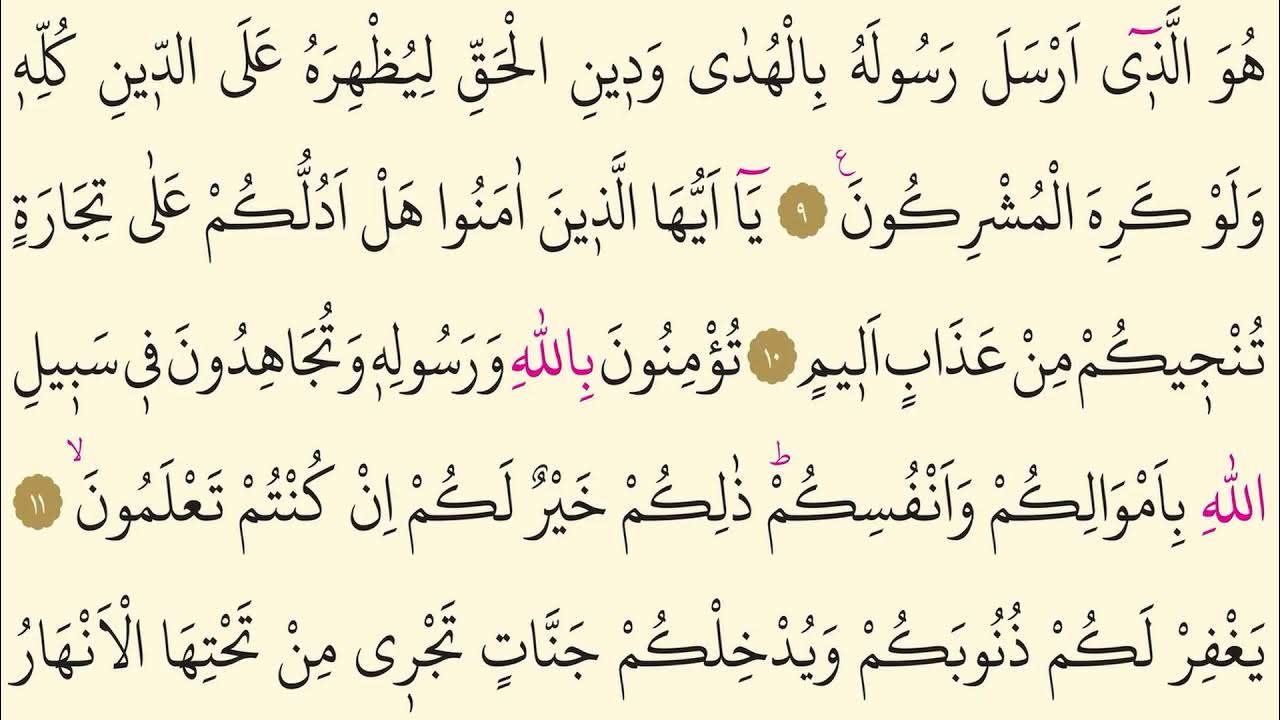 هُوَ الَّذ۪ٓي اَرْسَلَ رَسُولَهُ بِالْهُدٰى وَد۪ينِ الْحَقِّ لِيُظْهِرَهُ عَلَى الدّ۪ينِ كُلِّه۪
وَلَوْ كَرِهَ الْمُشْرِكُونَ ۟ع ٩ يَٓا اَيُّهَا الَّذ۪ينَ اٰمَنُوا هَلْ اَدُلُّكُمْ عَلٰى تِجَارَةٍ
تُنْج۪يكُمْ مِنْ عَذَابٍ اَل۪يمٍ ١٠ تُؤْمِنُونَ بِاللّٰهِ وَرَسُولِه۪ وَتُجَاهِدُونَ ف۪ي سَب۪يلِ
اللّٰهِ بِاَمْوَالِكُمْ وَاَنْفُسِكُمْۜ ذٰلِكُمْ خَيْرٌ لَكُمْ اِنْ كُنْتُمْ تَعْلَمُونَۙ ١١
يَغْفِرْ لَكُمْ ذُنُوبَكُمْ وَيُدْخِلْكُمْ جَنَّاتٍ تَجْر۪ي مِنْ تَحْتِهَا الْاَنْهَارُ